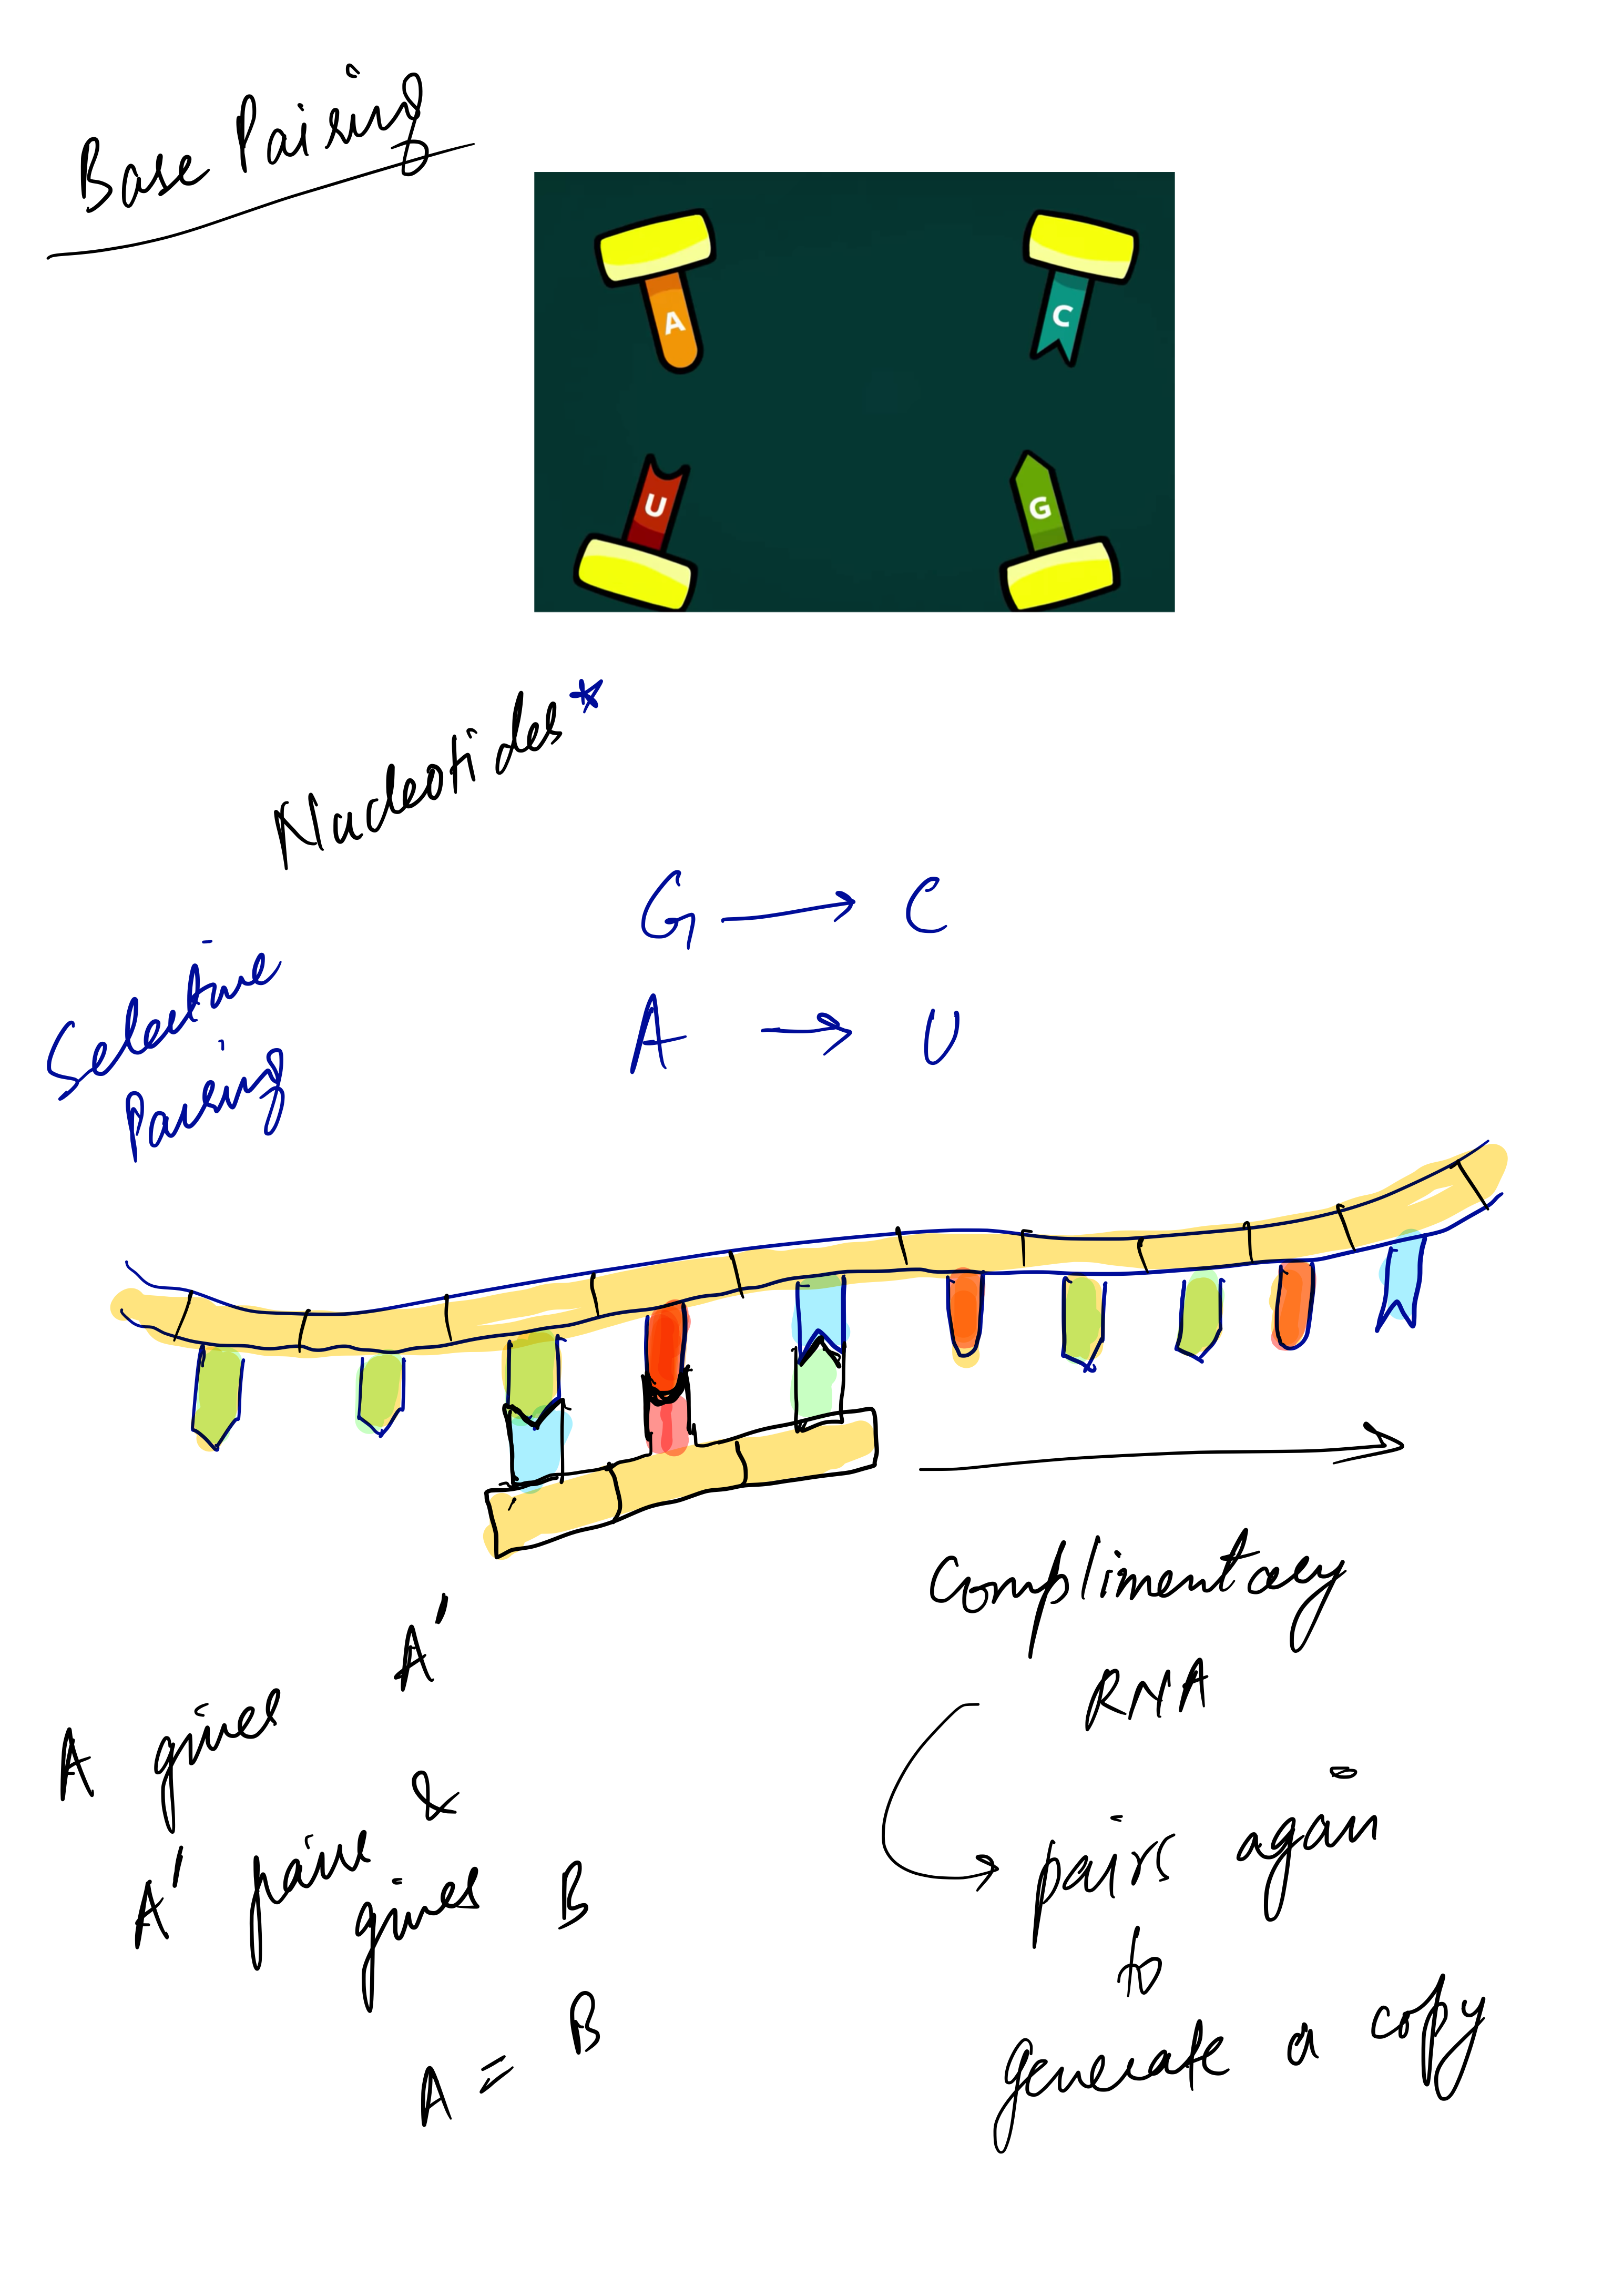 Base Pairing
A
C
U
G
Nucleotides*
G → C
A → U
Selective
Pairing
Complimentary
RNA
pairs again
to
generate a copy
A gives A'
A' pairs &
gives B
A = B